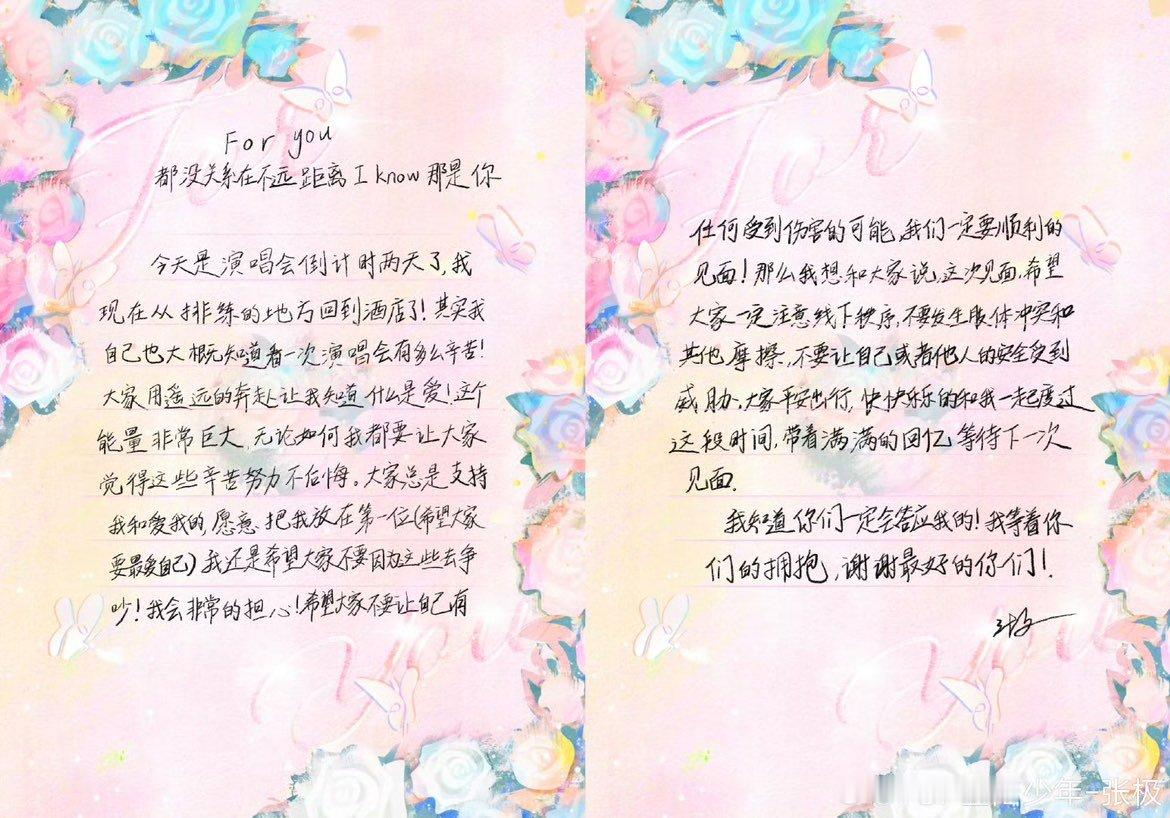 For you
都没关系在不远距离I know那是你
今天是演唱会倒计时两天了,我
现在从排练的地方回到酒店了!其实我
自己也大概知道看一次演唱会有多么辛苦!
大家用遥远的奔赴让我知道什么是爱!这个
能量非常巨大,无论如何我都要让大家
觉得这些辛苦努力不后悔。大家总是支持
我和爱我的,愿意把我放在第一位(希望大家
要最爱自己)我还是希望大家不要因为这些去争
吵!我会非常的担心!希望大家不要让自己有
任何受到伤害的可能,我们一定要顺利的
见面!那么我想和大家说,这次见面,希望
大家一定注意线下秩序,不要发生肢体冲突和
其他摩擦,不要让自己或者他人的安全受到
威胁。大家平安出行,快快乐乐的和我一起度过
这段时间,带着满满的回忆等待下一次
见面.
我知道你们一定会答应我的!我等着你
们的拥抱,谢谢最好的你们!
For
you
For
you
少年-张极